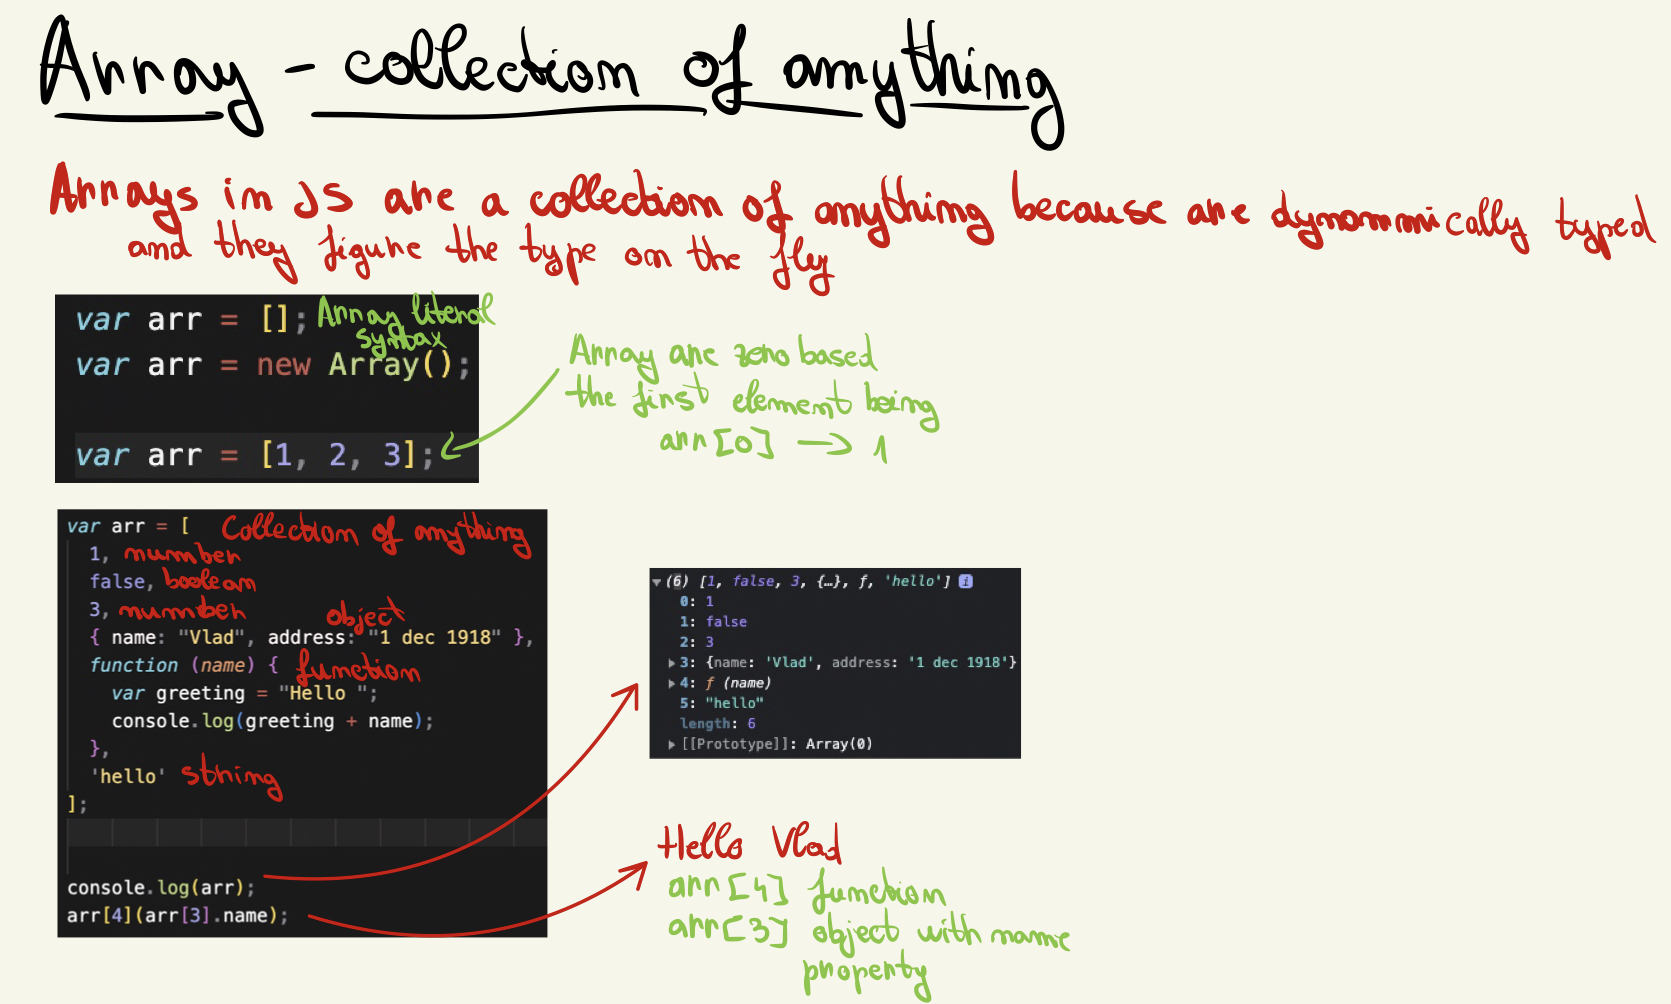 Array - collection of anything
Arrays in JS are a collection of anything because are dynammically typed
and they figure the type on the fly
var arr = []; Array literal
syntax
var arr = new Array();
var arr = [1, 2, 3];
Array are zero based
the first element being
arr[0] → 1
var arr = [ Collection of anything
1, number
false, boolean
3, number
object
{ name: "Vlad", address: "1 dec 1918" },
function (name) { function
var greeting = "Hello ";
console.log(greeting + name);
},
'hello' string
];
console.log(arr);
arr[4](arr[3].name);
▼(6) [1, false, 3, {…}, ƒ, 'hello'] i
0: 1
1: false
2: 3
▶3: {name: 'Vlad', address: '1 dec 1918'}
▶4: ƒ (name)
5: "hello"
length: 6
▶[[Prototype]]: Array(0)
Hello Vlad
arr[4] function
arr[3] object with name
property